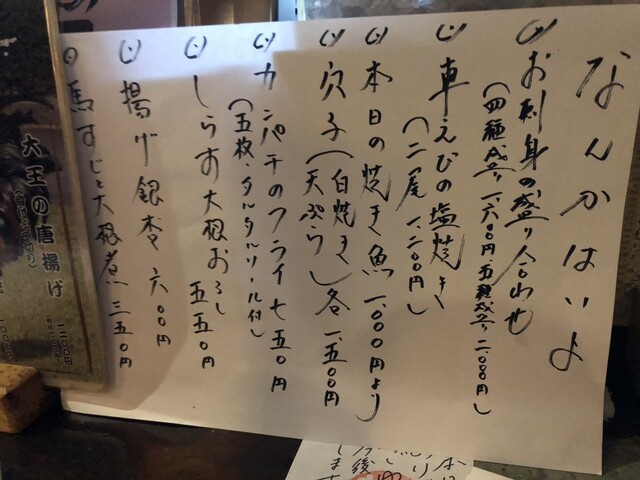 なんかはいよ
お刺身の盛り合わせ
(四種盛り 一、六〇〇円・五種盛り 二、〇八〇円)
車えびの塩焼き
(二尾 一、二〇〇円)
本日の焼き魚 一、〇〇〇円より
穴子(白焼き 天ぷら)各一、五〇〇円
カンパチのフライ 七五〇円
(五枚・タルタルソース付)
しらす大根おろし 五五〇円
揚げ銀杏 六〇〇円
馬すじと大根煮 三五〇円
大王の唐揚げ 一二〇〇円